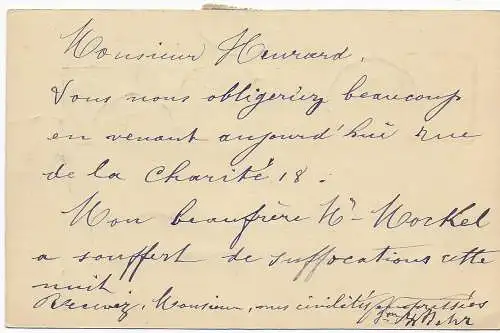 Monsieur Henrard.
Vous nous obligeriez beaucoup
en venant aujourd'hui rue
de la Charité 18.
Mon beaufrère Mr Mockel
a souffert de suffocations cette
nuit
Recevez, Monsieur, nos civilités empressées
Behr